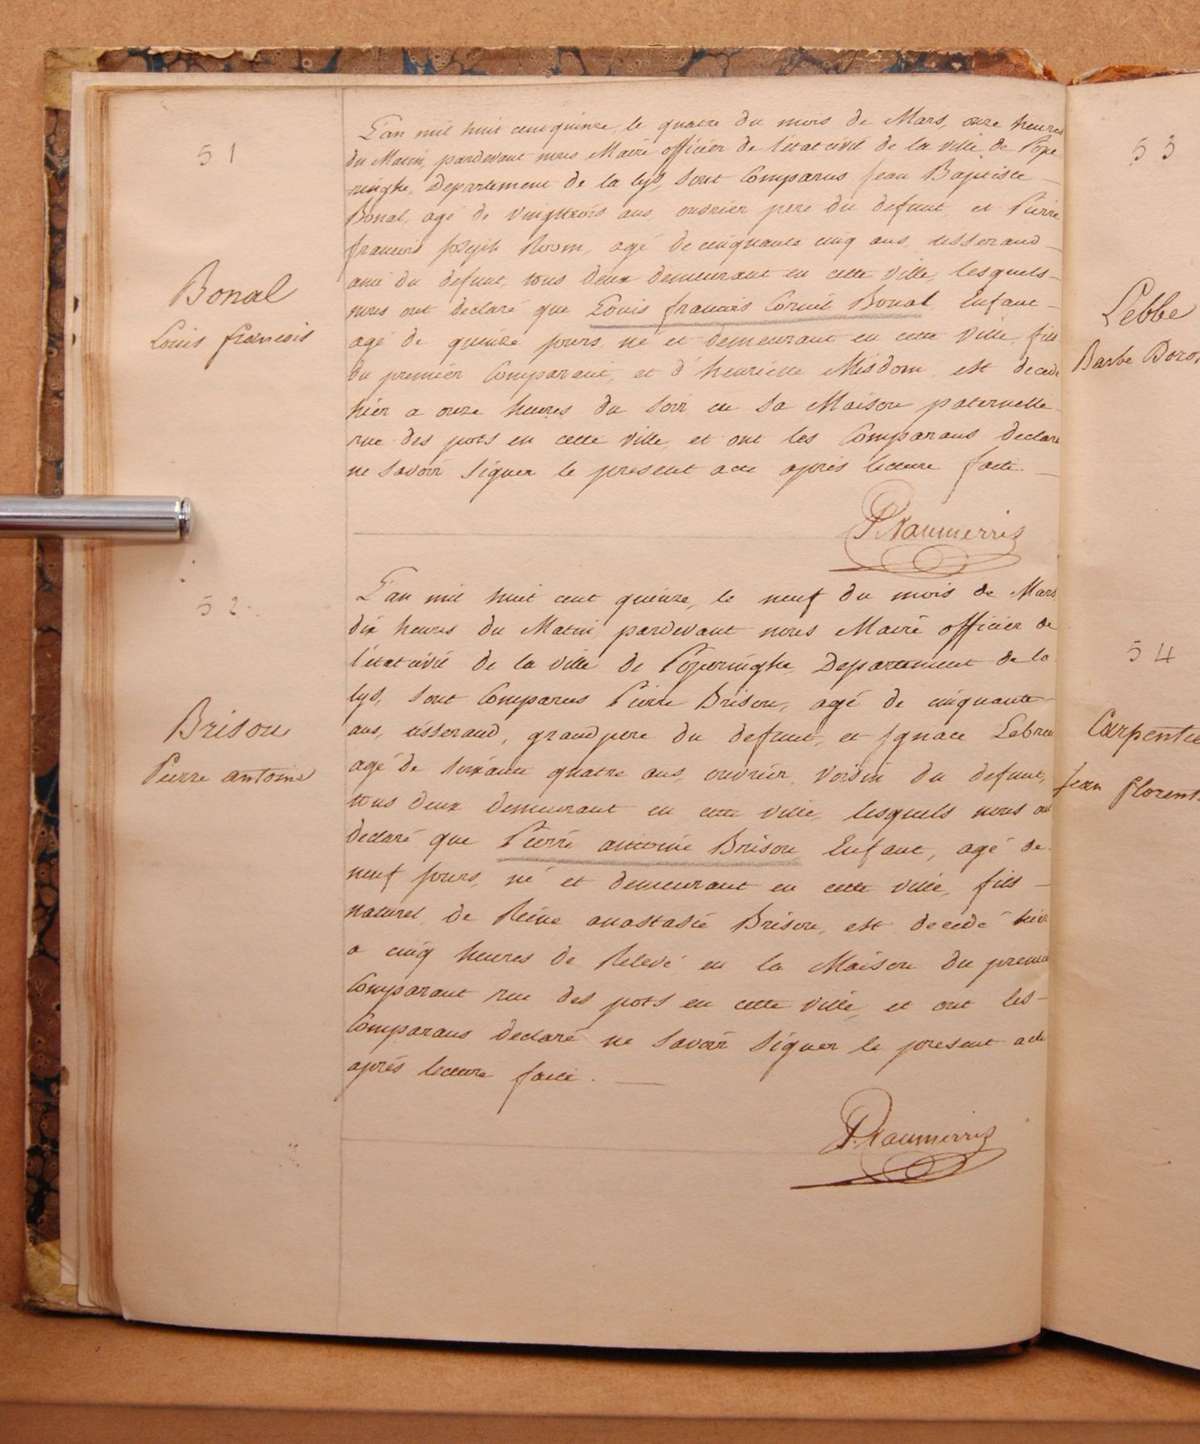 51
Bonal
Louis francois
L'an mil huit cent quinze, le quatre du mois de Mars, onze heures
du Matin, pardevant nous Maire officier de l'état civil de la ville de Pope
ringhe, Departement de la lys, sont Comparus Jean Baptiste
Bonal, agé de vingttrois ans, ouvrier pere du defunt et Pierre
francois Joseph Room, agé de cinquante cinq ans, tisserand
ami du defunt, tous deux demeurant en cette ville, lesquels
nous ont declaré que Louis francois Cornil Bonal Enfant
agé de quinze jours, né et demeurant en cette ville, fils
du premier Comparant, et d'henriette Misdom, est decedé
hier a onze heures du soir en sa Maison paternelle
rue des pots en cette ville, et ont les Comparans declaré
ne savoir signer le present acte après lecture faite.
52
Brisou
Pierre antoine
L'an mil huit cent quinze, le neuf du mois de Mars
dix heures du Matin, pardevant nous Maire officier de
l'état civil de la ville de Poperinghe, Departement de la
lys, sont Comparus Pierre Brisou, agé de cinquante
ans, tisserand, grandpere du defunt, et Ignace Lebreu
agé de soixante quatre ans, ouvrier, voisin du defunt,
tous deux demeurant en cette ville, lesquels nous ont
declaré que Pierre antoine Brisou Enfant, agé de
neuf jours, né et demeurant en cette ville, fils
naturel de Reine anastasie Brisou, est decedé hier
a cinq heures de Relevé en la Maison du premier
Comparant rue des pots en cette ville, et ont les
Comparans declaré ne savoir signer le present acte
après lecture faite.
53
Lebbe
Barbe
54
Carpentie
Jean florent